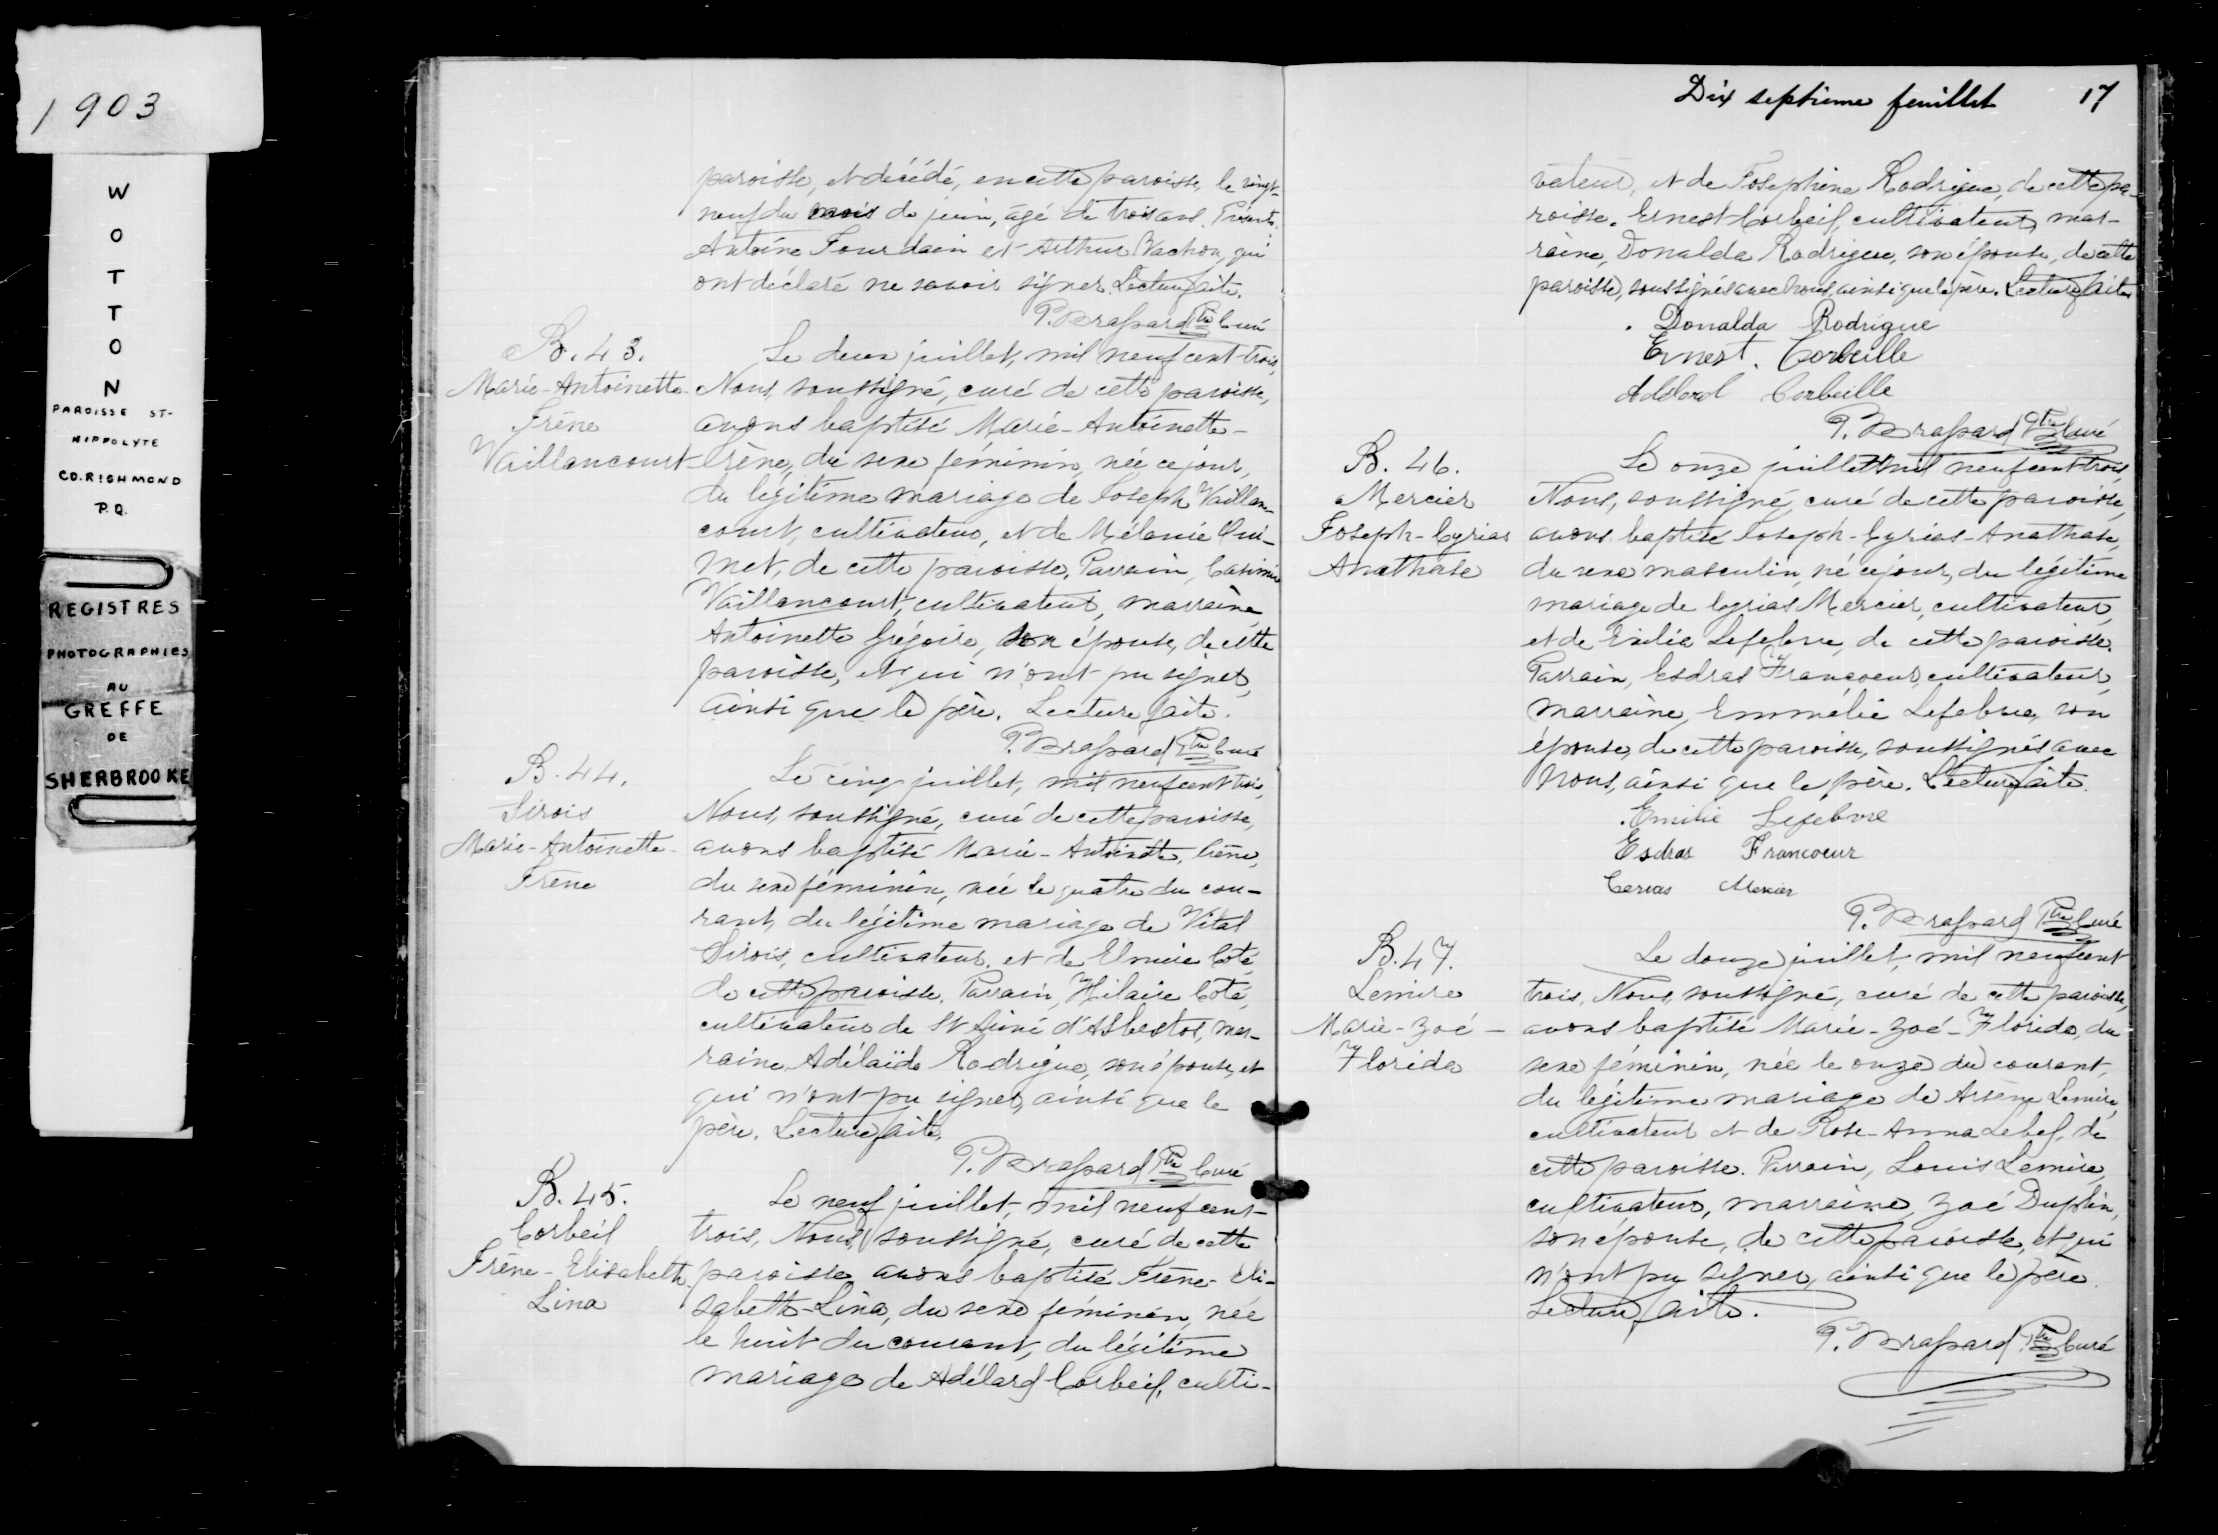 1903
W
O
T
T
O
N
PAROISSE ST-
HIPPOLYTE
CO. RICHMOND
P.Q.
REGISTRES
PHOTOGRAPHIES
AU
GREFFE
DE
SHERBROOKE
paroisse, et décédé, en cette paroisse, le vingt-
neuf du mois de juin, âgé de trois ans. Présents:
Antoine Jourdain et Arthur Vachon, qui
ont déclaré ne savoir signer. Lecture faite.
P. Brassard Ptre Curé
B. 43.
Marie-Antoinette-
Irène
Vaillancourt
Le deux juillet, mil neuf cent-trois,
Nous, soussigné, curé de cette paroisse,
avons baptisé Marie-Antoinette-
Irène, du sexe féminin, née ce jour,
du légitime mariage de Joseph Vaillan-
court, cultivateur, et de Mélanie Oui-
met, de cette paroisse. Parrain, Casimir
Vaillancourt, cultivateur, marraine,
Antoinette Grégoire, son épouse, de cette
paroisse, et qui n'ont pu signer,
ainsi que le père. Lecture faite.
P. Brassard Ptre Curé
B. 44.
Sirois
Marie-Antoinette-
Irène
Le cinq juillet, mil neuf cent trois,
Nous, soussigné, curé de cette paroisse,
avons baptisé Marie-Antoinette, Irène,
du sexe féminin, née le quatre du cou-
rant, du légitime mariage de Vital
Sirois, cultivateur, et de Elmire Coté,
de cette paroisse. Parrain, Hilaire Coté,
cultivateur de St Aimé d'Asbestos, mar-
raine, Adélaïde Rodrigue, son épouse, et
qui n'ont pu signer, ainsi que le
père. Lecture faite.
P. Brassard Ptre Curé
B. 45.
Corbeil
Irène-Elisabeth-
Lina
Le neuf juillet, mil neuf cent-
trois, Nous, soussigné, curé de cette
paroisse, avons baptisé Irène-Eli-
sabeth-Lina, du sexe féminin, née
le huit du courant, du légitime
mariage de Adélard Corbeil, culti-
Dix septième feuillet 17
vateur, et de Joséphine Rodrigue, de cette pa-
roisse. Ernest Corbeil, cultivateur, mar-
raine, Donalda Rodrigue, son épouse, de cette
paroisse, soussignés avec nous, ainsi que le père. Lecture faite
Donalda Rodrigue
Ernest. Corbeille
Corbeille
P. Brassard Ptre Curé
B. 46.
Mercier
Joseph-Cyrias
Anathase
Le onze juillet mil neuf cent trois,
Nous, soussigné, curé de cette paroisse,
avons baptisé Joseph-Cyrias-Anathase,
du sexe masculin, né ce jour, du légitime
mariage de Cyrias Mercier, cultivateur,
et de Exilia Lefebvre, de cette paroisse.
Parrain, Esdras Francoeur, cultivateur,
marraine, Emmélie Lefebvre, son
épouse, de cette paroisse, soussignés avec
Nous, ainsi que le père. Lecture faite.
Emilie Lefebvre
Esdras Francoeur
Cerias Mercier
P. Brassard Ptre Curé
B. 47.
Lemire
Marie-Zoé-
Florida
Le douze juillet, mil neuf cent
trois, Nous, soussigné, curé de cette paroisse,
avons baptisé Marie-Zoé-Florida, du
sexe féminin, née le onze du courant,
du légitime mariage de Arsène Lemire,
cultivateur et de Rose-Anna Lebel, de
cette paroisse. Parrain, Louis Lemire,
cultivateur, marraine, Zoé Duplin,
son épouse, de cette paroisse, et qui
n'ont pu signer, ainsi que le père.
Lecture faite.
P. Brassard Ptre Curé